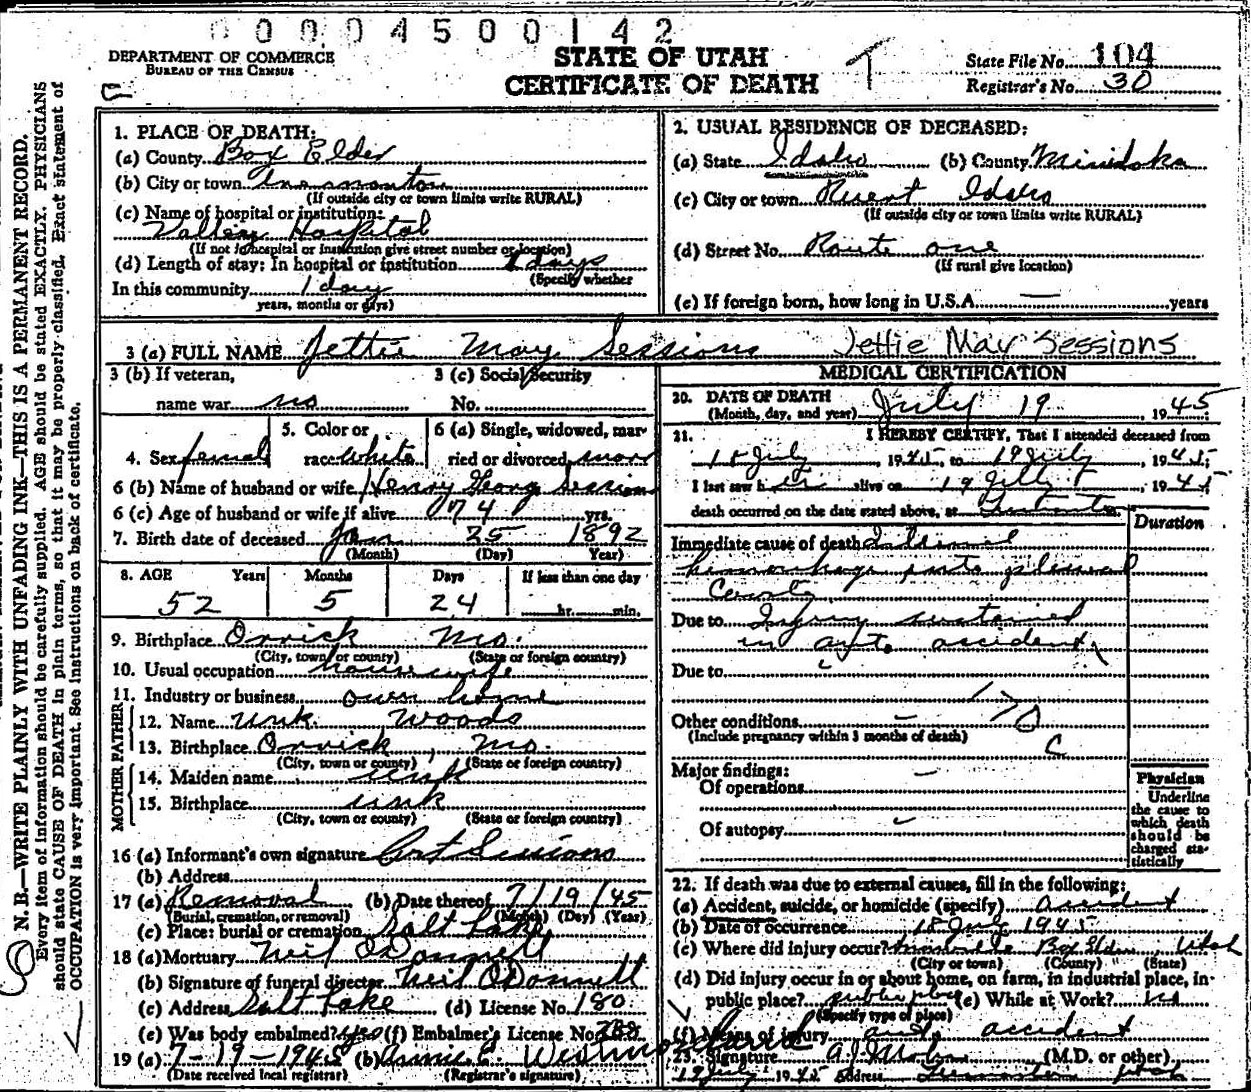 0 0 0 0 4 5 0 0 1 4 2
DEPARTMENT OF COMMERCE
BUREAU OF THE CENSUS
STATE OF UTAH
CERTIFICATE OF DEATH
State File No. 104
Registrar's No. 30
N. B.—WRITE PLAINLY WITH UNFADING INK—THIS IS A PERMANENT RECORD.
Every item of information should be carefully supplied. AGE should be stated EXACTLY. PHYSICIANS
should state CAUSE OF DEATH in plain terms, so that it may be properly classified. Exact statement of
OCCUPATION is very important. See instructions on back of certificate.
1. PLACE OF DEATH:
(a) County Box Elder
(b) City or town Tremonton
(If outside city or town limits write RURAL)
(c) Name of hospital or institution:
Valley Hospital
(If not in hospital or institution give street number or location)
(d) Length of stay: In hospital or institution 1 days
(Specify whether
In this community 1 day
years, months or days)
2. USUAL RESIDENCE OF DECEASED:
(a) State Idaho (b) County Minidoka
(c) City or town Rupert Idaho
(If outside city or town limits write RURAL)
(d) Street No. Route one
(If rural give location)
(e) If foreign born, how long in U.S.A. — years
3 (a) FULL NAME Jettie May Sessions Jettie May Sessions
3 (b) If veteran,
name war no
3 (c) Social Security
No.
4. Sex female
5. Color or
race white
6 (a) Single, widowed, mar-
ried or divorced marr
6 (b) Name of husband or wife Henry Georg Sessions
6 (c) Age of husband or wife if alive 74 yrs.
7. Birth date of deceased Jan 25 1892
(Month) (Day) Year)
8. AGE Years Months Days If less than one day
52 5 24 hr. min.
9. Birthplace Orrick Mo.
(City, town or county) (State or foreign country)
10. Usual occupation housewife
11. Industry or business own home
FATHER
12. Name unk. Woods
13. Birthplace Orrick, Mo.
(City, town or county) (State or foreign country)
MOTHER
14. Maiden name unk
15. Birthplace unk
(City, town or county) (State or foreign country)
16 (a) Informant's own signature Art Sessions
(b) Address
17 (a) Removal (b) Date thereof 7/19/45
(Burial, cremation, or removal) (Month) (Day) (Year)
(c) Place: burial or cremation Salt Lake
18 (a) Mortuary Neil O'Donnell
(b) Signature of funeral director Neil O'Donnell
(c) Address Salt Lake (d) License No. 180
(e) Was body embalmed? yes (f) Embalmer's License No.
19 (a) 7-19-1945 (b) Annie E.
(Date received local registrar) (Registrar's signature)
MEDICAL CERTIFICATION
20. DATE OF DEATH
(Month, day, and year) July 19, 1945
21. I HEREBY CERTIFY, That I attended deceased from
18 July, 1945, to 19 July, 1945
I last saw her alive on 19 July, 1945
death occurred on the date stated above, at
Duration
Immediate cause of death Internal
hemorrhage into pleural
Cavity
Due to Injury sustained
in auto accident
Due to
Other conditions –
(Include pregnancy within 3 months of death)
Major findings:
Of operations –
Of autopsy –
Physician
Underline
the cause to
which death
should be
charged sta-
tistically
22. If death was due to external causes, fill in the following:
(a) Accident, suicide, or homicide (specify) accident
(b) Date of occurrence 18 July 1945
(c) Where did injury occur? Box Elder Utah
(City or town) (County) (State)
(d) Did injury occur in or about home, on farm, in industrial place, in-
public place? public place (e) While at Work? no
(Specify type of place)
(f) Means of injury auto accident
23. Signature (M.D. or other)
19 July 1945 Address Tremonton Utah